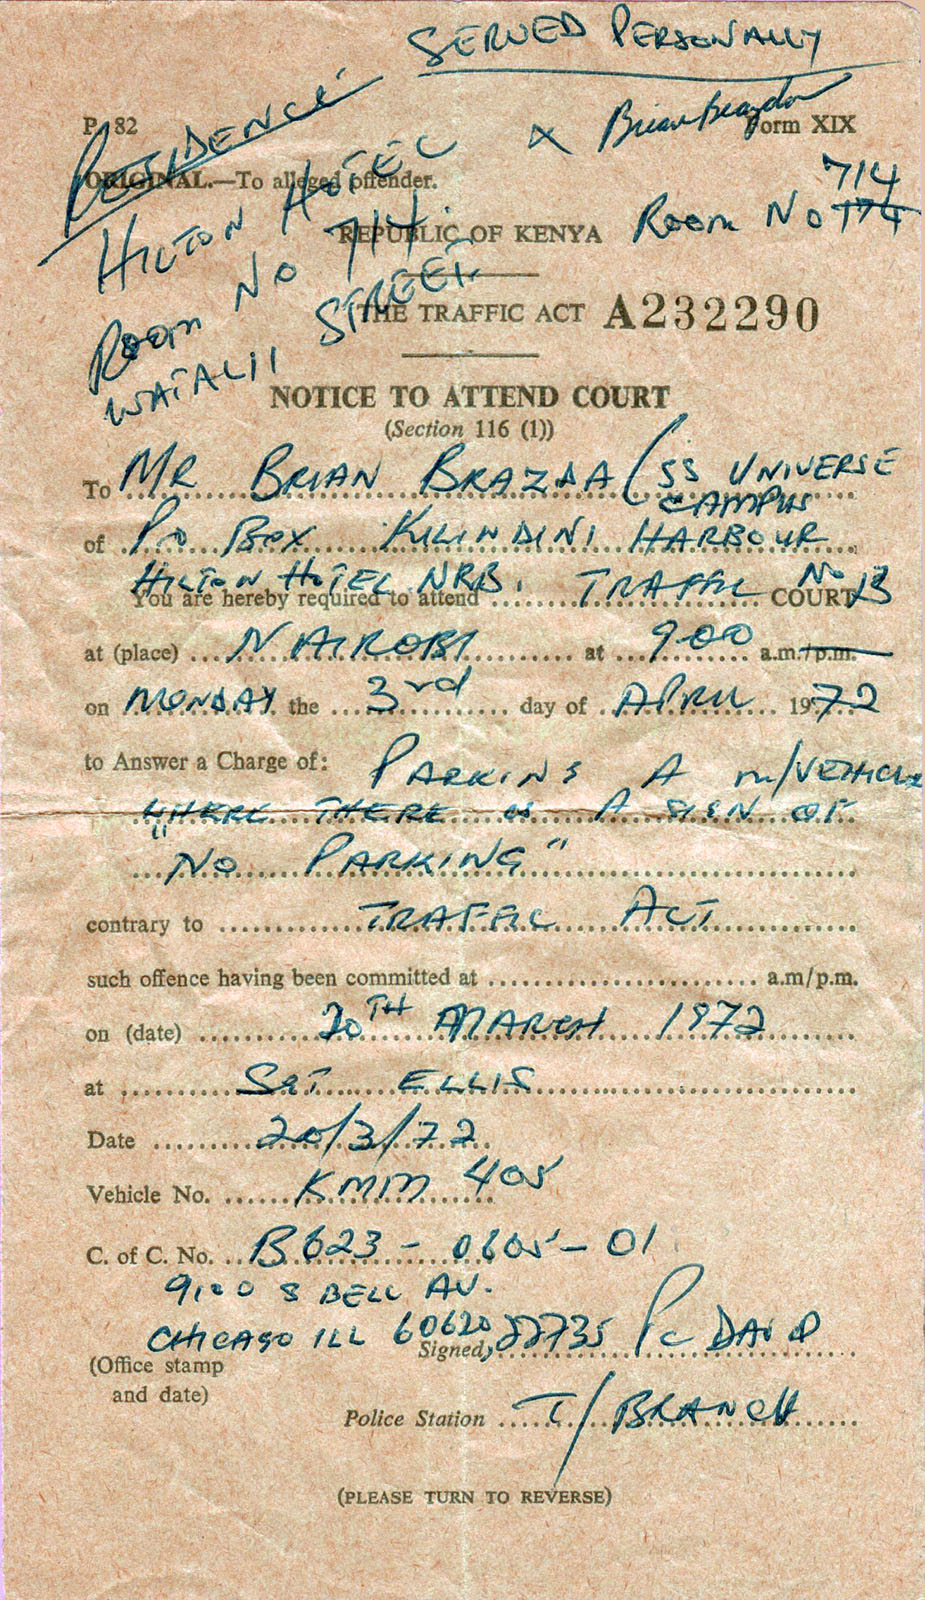 SERVED PERSONALLY
P. 82
Form XIX
x Brian Brazda
RESIDENCE
ORIGINAL.—To alleged offender.
HILTON HOTEL
714
REPUBLIC OF KENYA
Room No 174
ROOM NO 714
THE TRAFFIC ACT A232290
WATALII STREET
NOTICE TO ATTEND COURT
(Section 116 (1))
To MR BRIAN BRAZDA (SS UNIVERSE
CAMPUS
of P.O BOX KILINDINI HARBOUR
HILTON HOTEL NRB.
You are hereby required to attend TRAFFIC COURT No 13
at (place) NAIROBI at 9.00 a.m./p.m.
on MONDAY the 3rd day of APRIL 1972
to Answer a Charge of: PARKING A m/VEHICLE
WHERE THERE IS A SIGN OF
"NO PARKING"
contrary to TRAFFIC ACT
such offence having been committed at a.m/p.m.
on (date) 20TH MARCH 1972
at SGT ELLIS
Date 20/3/72
Vehicle No. KMM 405
C. of C. No. B623-0605-01
9100 S BELL AV.
CHICAGO ILL 60620
Signed, 22735 Pc DAVID
(Office stamp
and date)
Police Station T/BRANCH
(PLEASE TURN TO REVERSE)